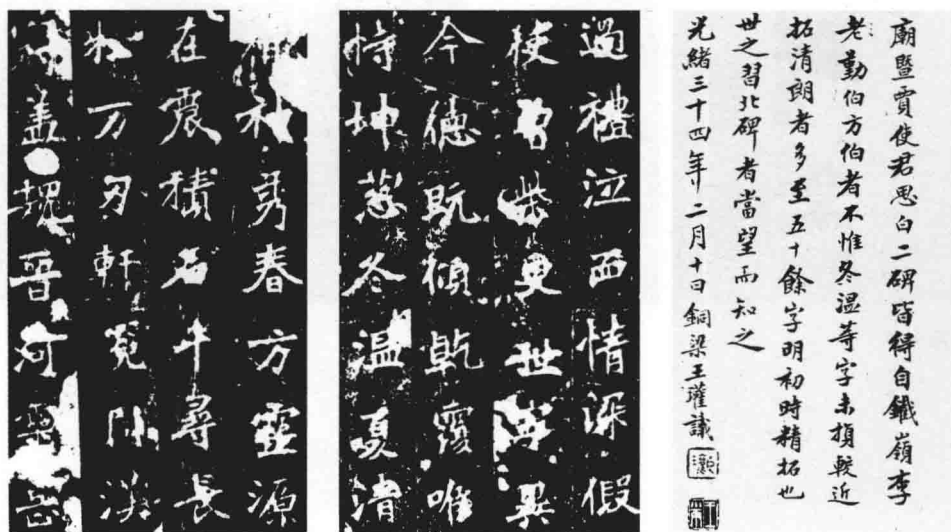 廟暨賈使君思白二碑皆得自鐵嶺李
老勤伯方伯者不惟冬溫等字未損較近
拓清朗者多至五十餘字明初時精拓也
世之習北碑者當望而知之
光緒三十四年二月十日銅梁王瓘識
過禮泣血情深假
使曾柴更世寧異
今德既傾乾覆唯
恃坤慈冬溫夏清
神秀春方靈源
在震積石千尋長
松万刃軒冕周漢
盖魏晉河靈岳